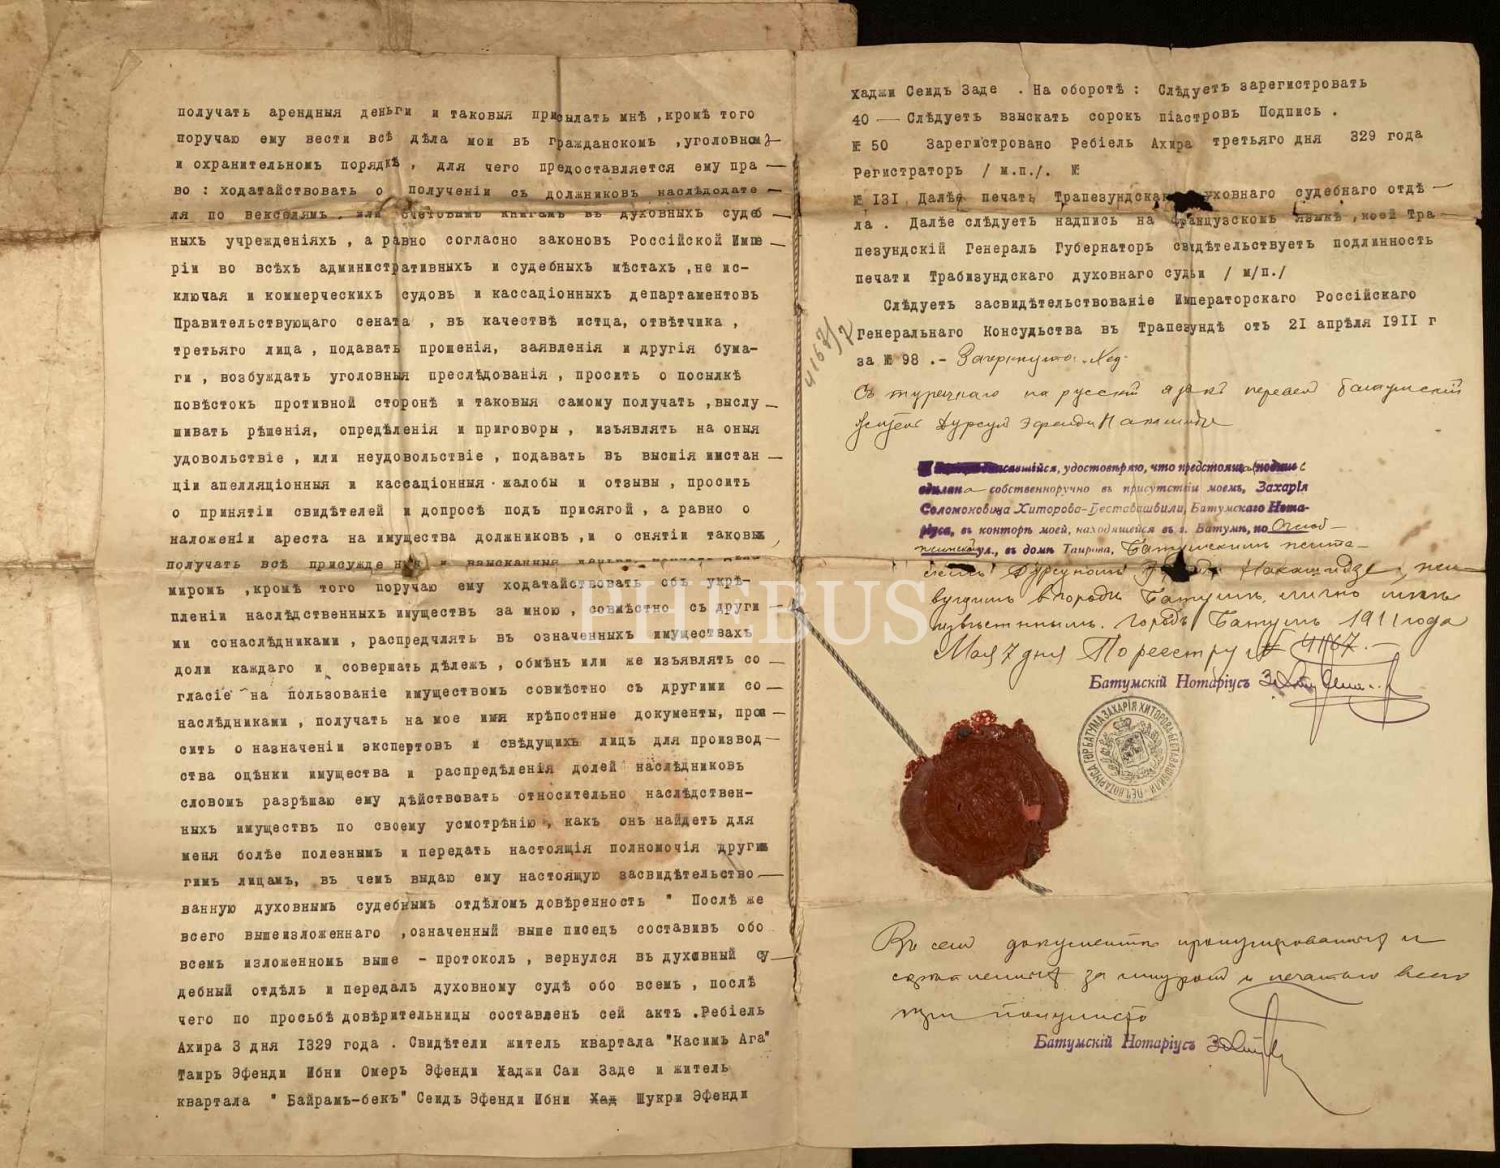 получать арендныя деньги и таковыя присылать мнѣ ,кромѣ того
поручаю ему вести всѣ дѣла мои въ гражданскомъ ,уголовномъ
и охранительномъ порядкѣ , для чего предоставляется ему пра —
во : ходатайствовать о полученіи съ должниковъ наслѣдодате
ля по векселямъ или счетовымъ книгамъ въ духовныхъ судеб
ныхъ учрежденіяхъ , а равно согласно законовъ Россійской Импе —
ріи во всѣхъ административныхъ и судебныхъ мѣстахъ ,не ис-
ключая и коммерческихъ судовъ и кассаціонныхъ департаментовъ
Правительствующаго сената , въ качествѣ истца, отвѣтчика ,
третьяго лица , подавать прошенія, заявленія и другія бума-
ги , возбуждать уголовныя преслѣдованія , просить о посылкѣ
повѣстокъ противной сторонѣ и таковыя самому получать ,выслу —
шивать рѣшенія, опредѣленія и приговоры , изъявлять на оныя
удовольствіе , или неудовольствіе , подавать въ высшія инстан
ціи апелляціонныя и кассаціонныя жалобы и отзывы , просить
о принятіи свидѣтелей и допросѣ подъ присягой , а равно о
наложеніи ареста на имущества должниковъ ,и о снятіи таковыхъ,
получать всѣ присужде и взысканныя
миромъ ,кромѣ того поручаю ему ходатайствовать объ укрѣ —
пленіи наслѣдственныхъ имуществъ за мною , совмѣстно съ други
ми сонаслѣдниками , распредчлять въ означенныхъ имуществахъ
доли каждаго и совершать дѣлежъ , обмѣнъ или же изъявлять со —
гласіе на пользованіе имуществомъ совмѣстно съ другими со —
наслѣдниками , получать на мое имя крѣпостные документы, про
сить о назначеніи экспертовъ и свѣдущихъ лицъ для производ —
ства оцѣнки имущества и распредѣленія долей наслѣдниковъ
словомъ разрѣшаю ему дѣйствовать относительно наслѣдствен-
ныхъ имуществъ по своему усмотрѣнію , какъ онъ найдетъ для
меня болѣе полезнымъ и передать настоящія полномочія другим
гимъ лицамъ, въ чемъ выдаю ему настоящую засвидѣтельство —
ванную духовнымъ судебнымъ отдѣломъ довѣренность " Послѣ же
всего вышеизложеннаго ,означенный выше писецъ составивъ обо
всемъ изложенномъ выше - протоколъ , вернулся въ духовный су —
дебный отдѣлъ и передалъ духовному судѣ обо всемъ , послѣ
чего по просьбѣ довѣрительницы составленъ сей актъ .Ребіель
Ахира 3 дня 1329 года . Свидѣтели житель квартала "Касимъ Ага"
Таиръ Эфенди Ибни Омеръ Эфенди Хаджи Саи Заде и житель
квартала " Байрамъ-бекъ" Сеидъ Эфенди Ибни Хад Шукри Эфенди
хаджи Сеидъ Заде . На оборотѣ : Слѣдуетъ зарегистровать
40 — Слѣдуетъ взыскать сорокъ піастровъ Подпись .
№ 50 Зарегистровано Ребіель Ахира третьяго дня 329 года
Регистраторъ / м.п./. №
№ 131 Далѣе печать Трапезундскаг уховнаго судебнаго отдѣ —
ла . Далѣе слѣдуетъ надпись на французскомъ языкѣ ,коей Тра —
пезундскій Генералъ Губернаторъ свидѣтельствуетъ подлинность
печати Трабизундскаго духовнаго судьи / м/п./
Слѣдуетъ засвидѣтельствованіе Императорскаго Россійскаго
Генеральнаго Консудьства въ Трапезундѣ отъ 21 апрѣля 1911 г
за № 98 .-
4167/2
Съ турецкаго на русскій языкъ перевелъ батумскій
житель Дурсунъ Эфенди Накашидзе
удостовѣряю, что предстоящая подпись
сдѣлана собственноручно въ присутствіи моемъ, Захарія
Соломоновича Хиторова-Беставашвили, Батумскаго Нота-
ріуса, въ конторѣ моей, находящейся въ г. Батумѣ, по
ул., въ домѣ Таирова, Батумскимъ жите-
лемъ Дурсуномъ Эфенди Накашидзе, жи-
вущимъ въ городѣ Батумѣ, лично мнѣ
извѣстнымъ. Городъ Батумъ 1911 года
Мая 7 дня По реестру № 4167.-
Батумскій Нотаріусъ
PHEBUS
Въ семъ документѣ пронумерованныхъ и
скрѣпленныхъ за шнуромъ и печатью всего
три полулиста
Батумскій Нотаріусъ